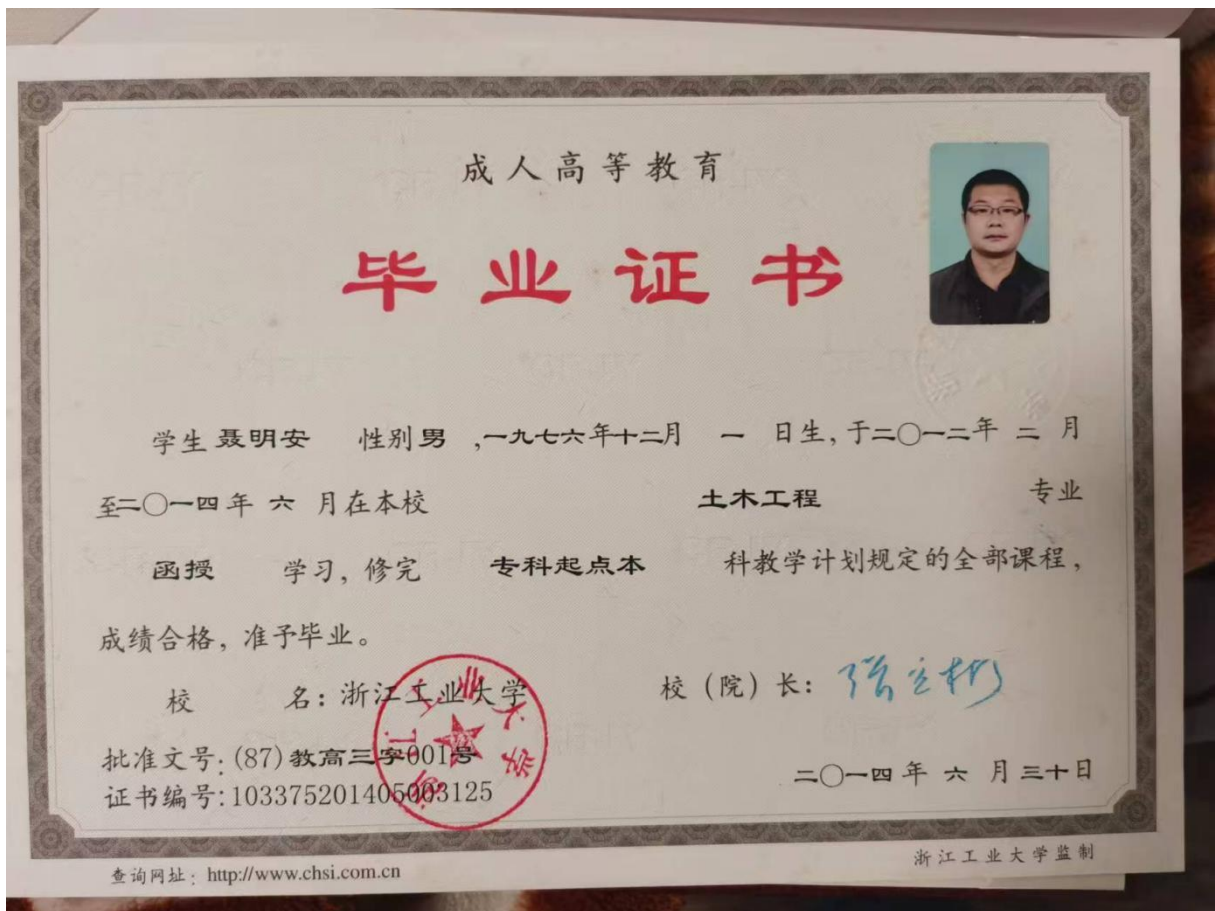 成人高等教育
毕业证书
学生 聂明安 性别 男 ,一九七六年十二月 一 日生, 于二〇一二年 二 月
至二〇一四年 六 月在本校 土木工程 专业
函授 学习, 修完 专科起点本 科教学计划规定的全部课程,
成绩合格, 准予毕业。
校 名: 浙江工业大学
校 (院) 长: 张立彬
批准文号: (87) 教高三字001号
证书编号: 103375201405003125
二〇一四年 六 月 三十日
浙江工业大学
查询网址: http://www.chsi.com.cn
浙江工业大学监制